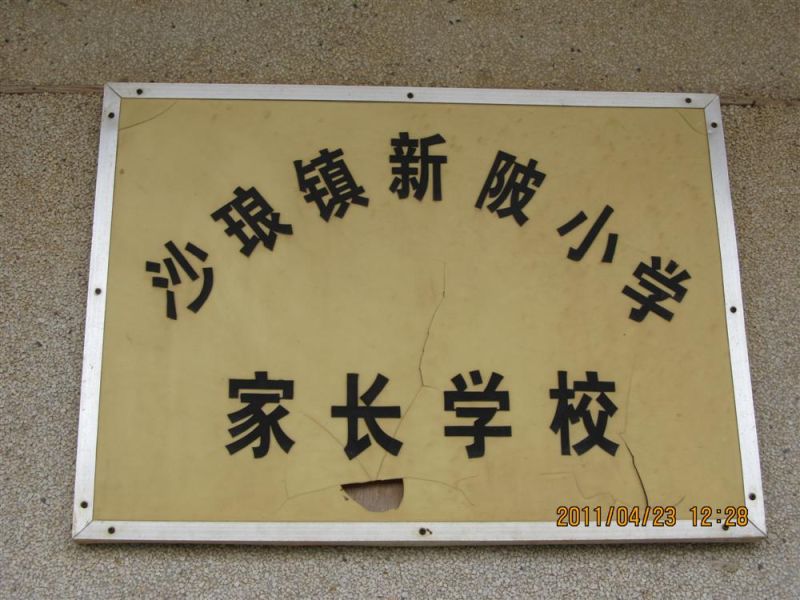 沙琅镇新陂小学
家长学校
2011/04/23 12:28